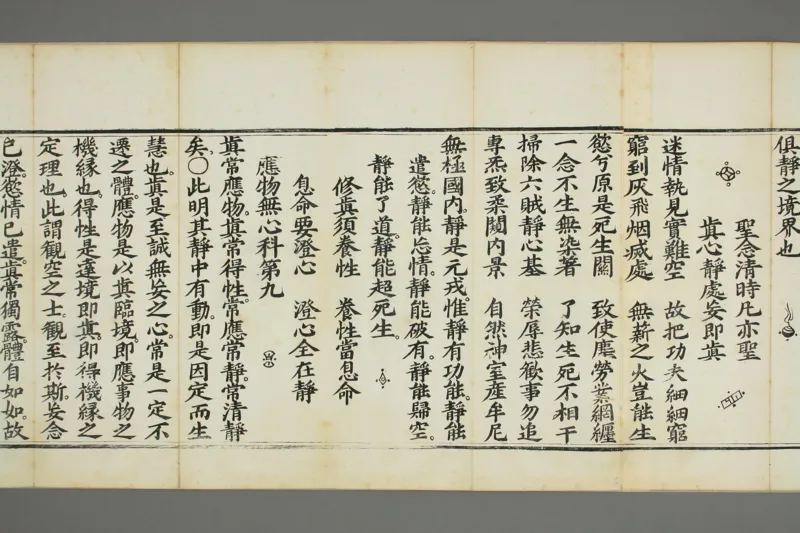 俱靜之境界也
聖念清時凡亦聖
眞心靜處妄即眞
迷情執見實難空　故把功夫細細窮
窮到灰飛烟滅處　無薪之火豈能生
慾兮原是死生關　致使塵勞業網纏
一念不生無染著　了知生死不相干
掃除六賊靜心基　榮辱悲歡事勿追
專炁致柔闚內景　自然神室產牟尼
無極國内。靜是元戎。惟靜有功能。靜能
遣慾。靜能忘情。靜能破有。靜能歸空。
靜能了道。靜能超死生。
修眞須養性　養性當息命
息命要澄心　澄心全在靜
應物無心科第九
眞常應物。眞常得性。常應常靜。常清靜
矣。○此明其靜中有動。即是因定而生
慧也。眞是至誠無妄之心。常是一定不
遷之體。應物是以眞臨境。即應事物之
機緣也。得性是達境即眞。即得機緣之
定理也。此謂觀空之士。觀至於斯。妄念
已澄。慾情已遣。眞常獨露。體自如如。故